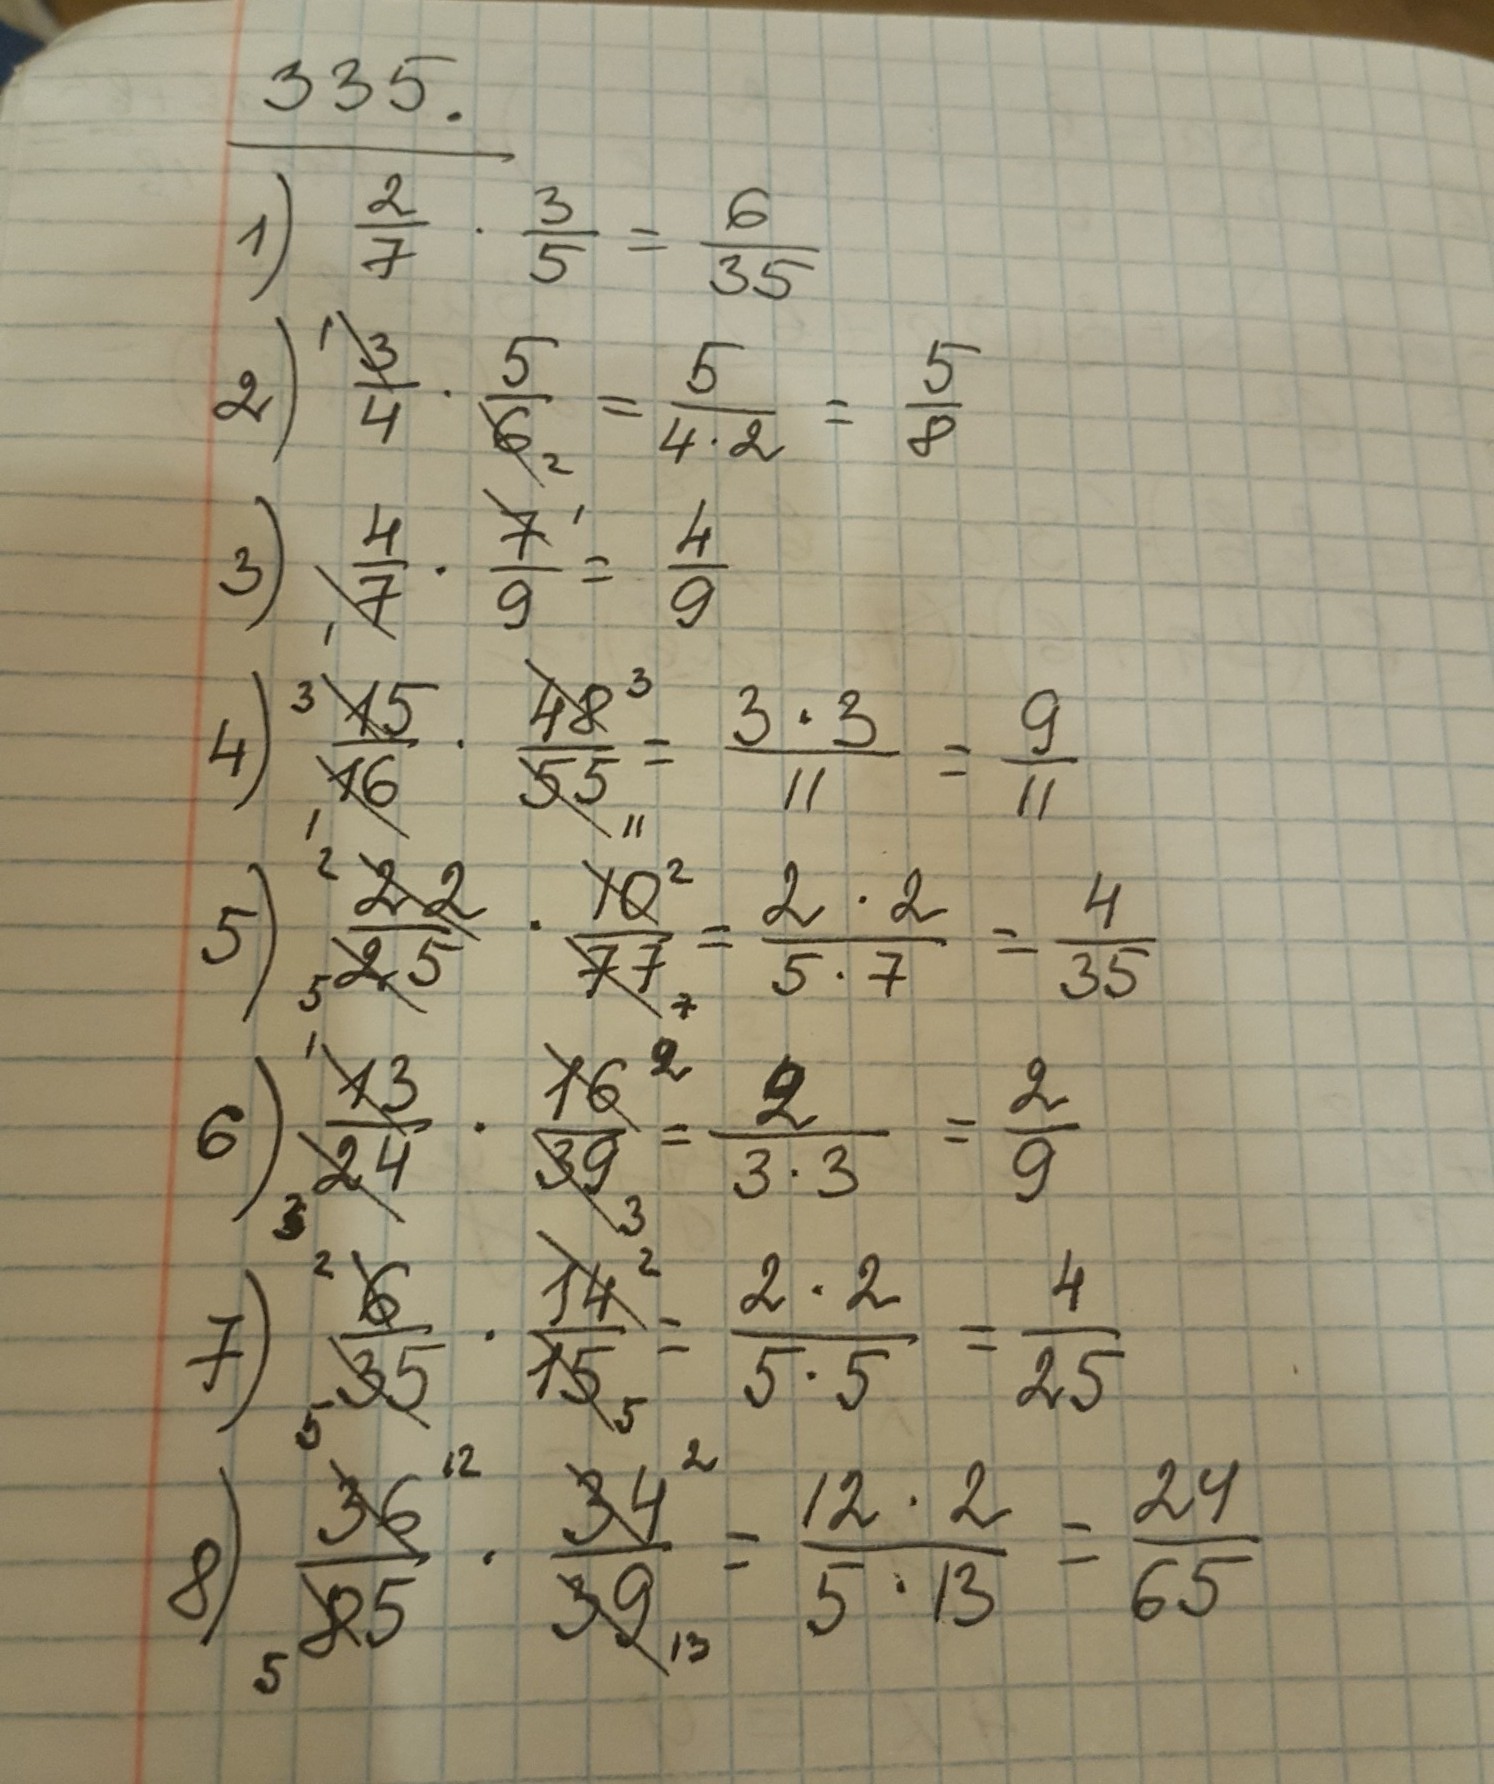 335.
1) 2/7 · 3/5 = 6/35
2) 1 3/4 · 5/6 2 = 5/4·2 = 5/8
3) 4/7 1 · 7/9 1 = 4/9
4) 3 15/16 1 · 48/55 3 11 = 3·3/11 = 9/11
5) 2 22/25 5 · 10/77 2 7 = 2·2/5·7 = 4/35
6) 1 13/24 3 · 16/39 2 3 = 2/3·3 = 2/9
7) 2 6/35 5 · 14/15 2 5 = 2·2/5·5 = 4/25
8) 36/85 12 5 · 34/39 2 13 = 12·2/5·13 = 24/65